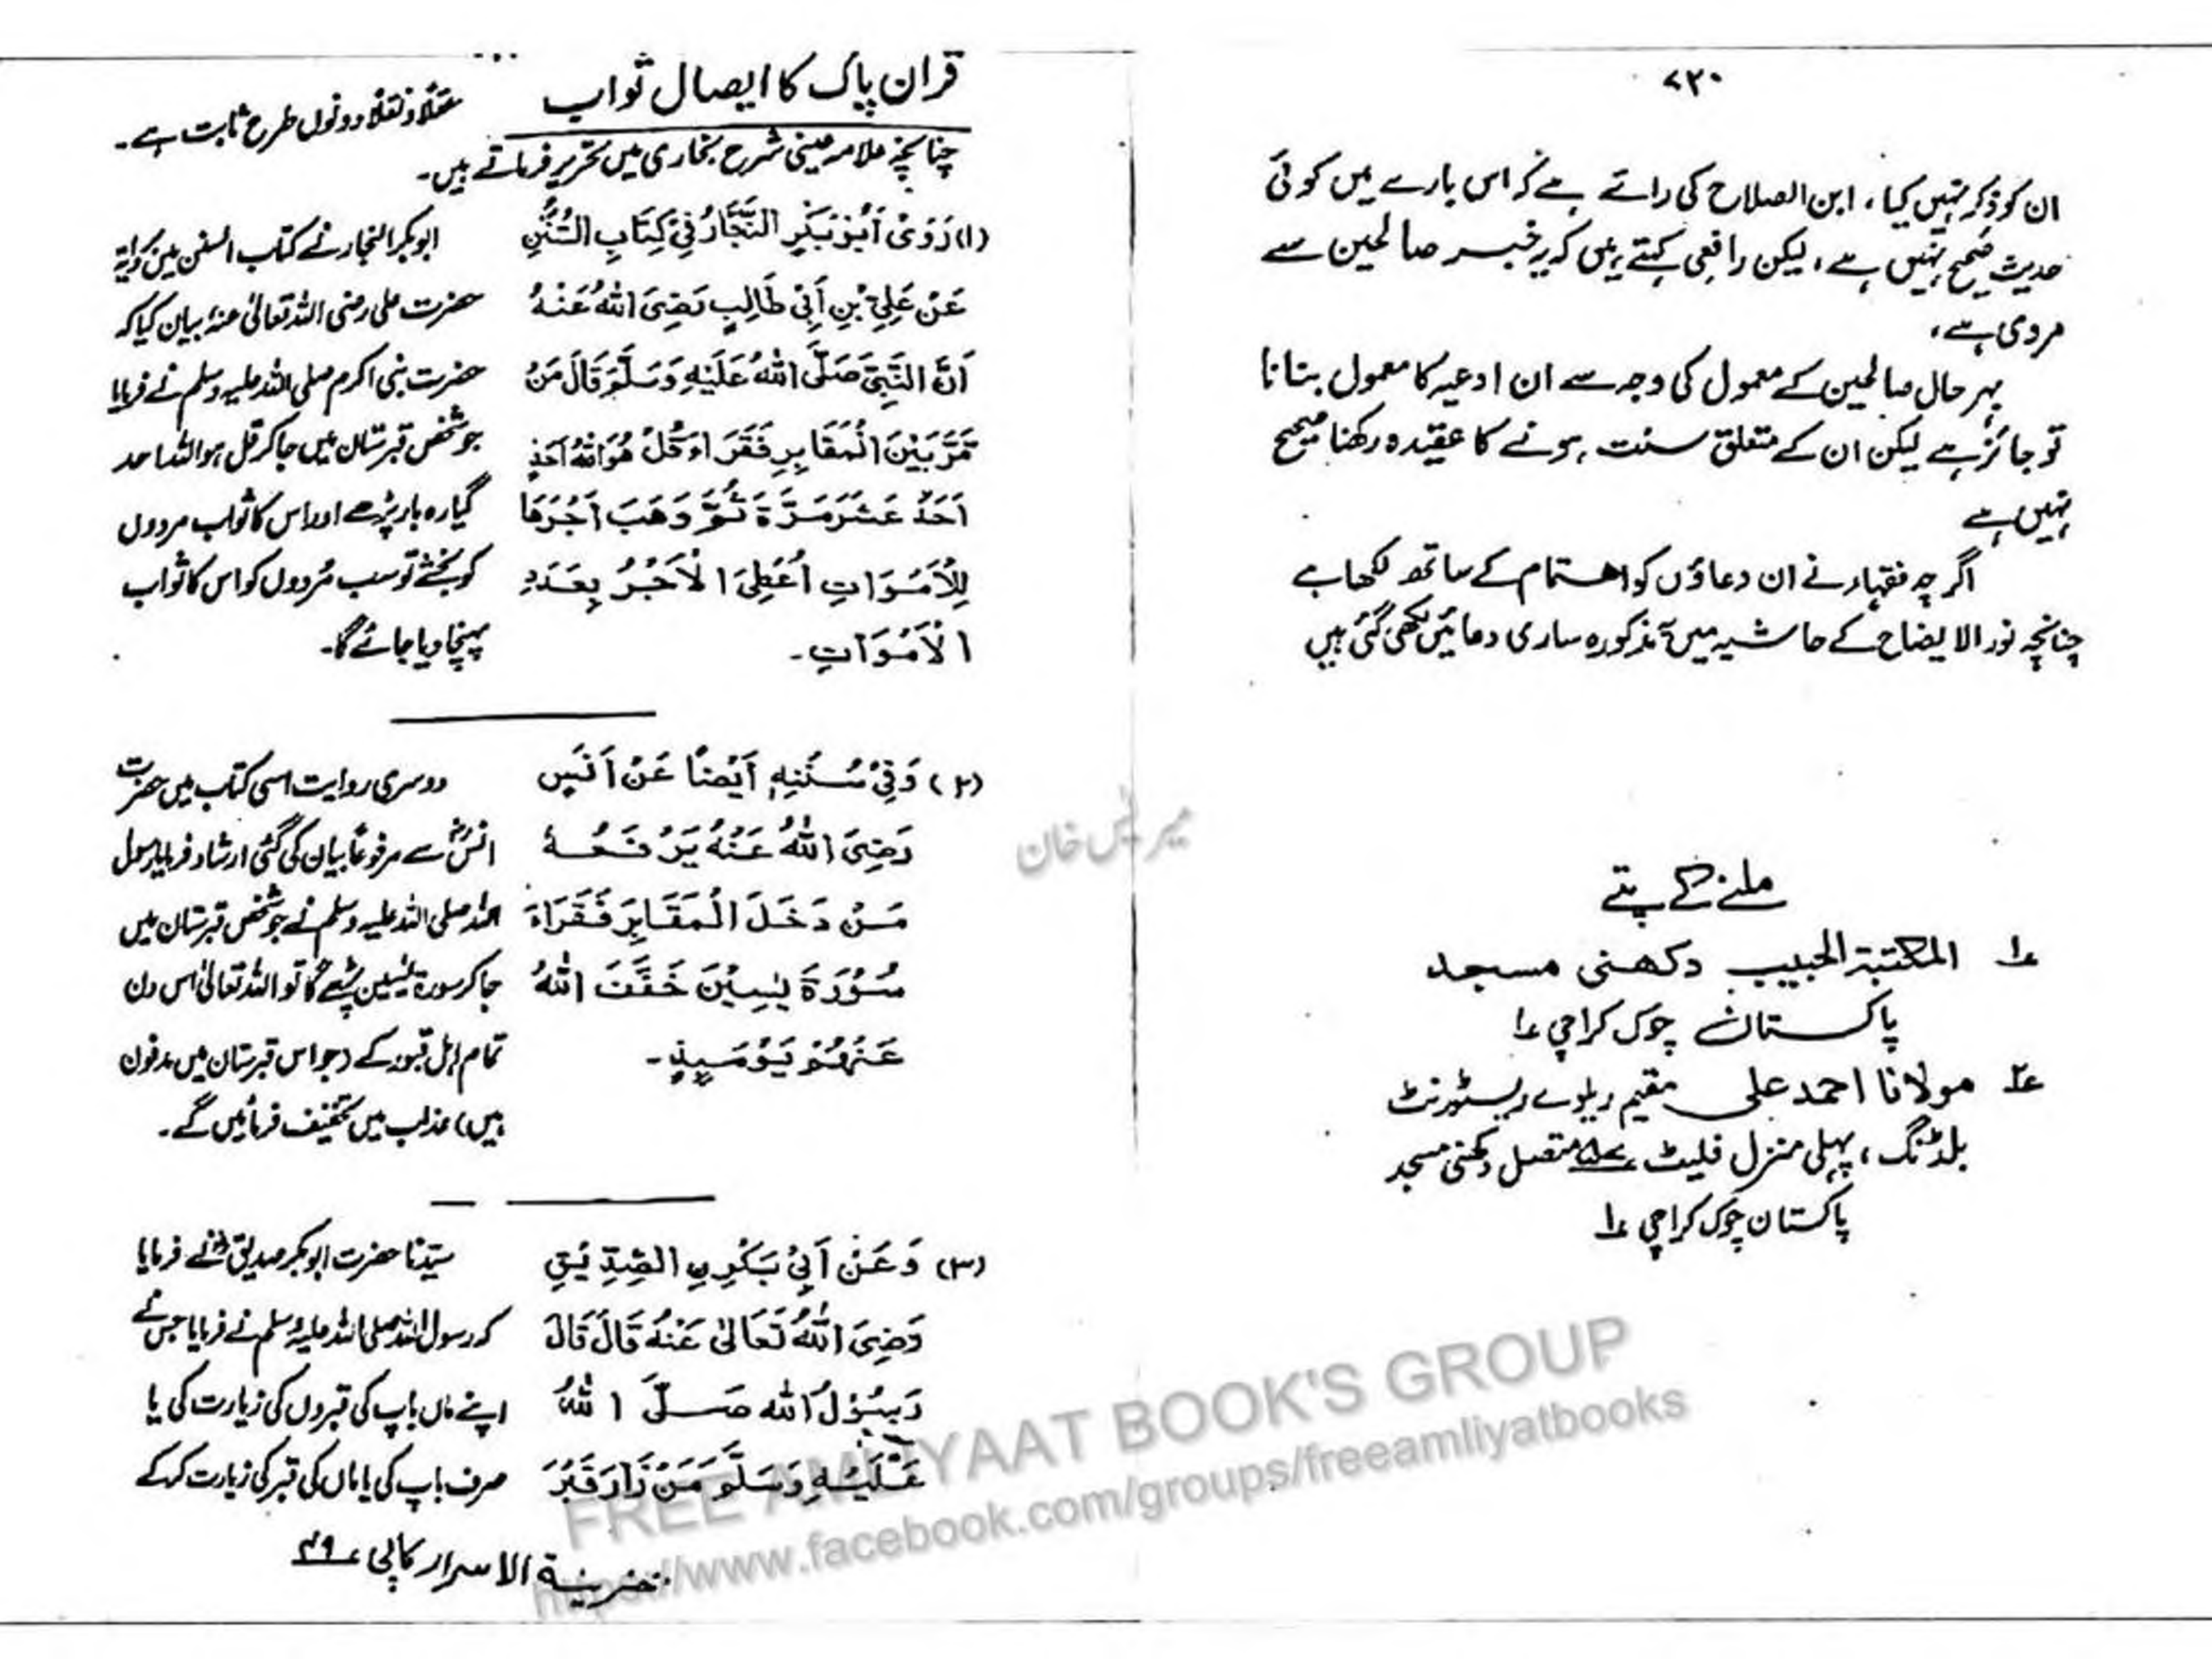 ۷۲۰
ان کو ذکر نہیں کیا، ابن الصلاح کی رائے ہے کہ اس بارے میں کوئی
حدیث صحیح نہیں ہے، لیکن رافعی کہتے ہیں کہ یہ خبر صالحین سے
مروی ہے،
بہر حال صالحین کے معمول کی وجہ سے ان ادعیہ کا معمول بنانا
تو جائز ہے لیکن ان کے متعلق سنت ہونے کا عقیدہ رکھنا صحیح
نہیں ہے
اگرچہ فقہاء نے ان دعاؤں کو اہتمام کے ساتھ لکھا ہے
چنانچہ نور الایضاح کے حاشیہ میں مذکورہ ساری دعائیں لکھی گئی ہیں
ملنے کے پتے
۱؎ المکتبۃ الحبیب دکھنی مسجد
پاکستان چوک کراچی ۱؎
۲؎ مولانا احمد علی مقیم ریلوے ریسٹورنٹ
بلڈنگ، پہلی منزل فلیٹ متصل دکھنی مسجد
پاکستان چوک کراچی ۱؎
قران پاک کا ایصال ثواب
عقلاً و نقلاً دونوں طرح ثابت ہے۔
چنانچہ علامہ عینی شرح بخاری میں تحریر فرماتے ہیں۔
(۱) رَوٰی اَبُوْ بَکْرٍ النَّجَّارُ فِیْ کِتَابِ السُّنَنِ
عَنْ عَلِیِّ بْنِ اَبِیْ طَالِبٍ رَضِیَ اللّٰهُ عَنْهُ
اَنَّ النَّبِیَّ صَلَّی اللّٰهُ عَلَیْهِ وَسَلَّمَ قَالَ مَنْ
مَّرَّ بَیْنَ الْمَقَابِرِ فَقَرَاءَ قُلْ هُوَ اللّٰهُ اَحَدٌ
اَحَدَ عَشَرَ مَرَّةً ثُمَّ وَهَبَ اَجْرَهَا
لِلْاَمْوَاتِ اُعْطِیَ الْاَجْرُ بِعَدَدِ
الْاَمْوَاتِ۔
ابوبکر النجار نے کتاب السنن میں روایۃ
حضرت علی رضی اللہ تعالیٰ عنہٗ بیان کیا کہ
حضرت نبی اکرم صلی اللہ علیہ وسلم نے فرمایا
جو شخص قبرستان میں جا کر قل ہو اللہ احد
گیارہ بار پڑھے اور اس کا ثواب مردوں
کو بخشے تو سب مُردوں کو اس کا ثواب
پہنچا دیا جائے گا۔
(۲) وَفِیْ سُنَنِهٖ اَیْضًا عَنْ اَنَسٍ
رَضِیَ اللّٰهُ عَنْهُ یَرْفَعُهٗ
مَنْ دَخَلَ الْمَقَابِرَ فَقَرَاءَ
سُوْرَةَ یٰسِیْنَ خَفَّفَ اللّٰهُ
عَنْهُمْ یَوْمَئِذٍ۔
دوسری روایت اسی کتاب میں حضرت
انسؓ سے مرفوعًا بیان کی گئی ارشاد فرمایا رسول
اللہ صلی اللہ علیہ وسلم نے جو شخص قبرستان میں
جا کر سورۃ یٰسین پڑھے گا تو اللہ تعالیٰ اس دن
تمام اہل قبور کے (جو اس قبرستان میں مدفون
ہیں) عذاب میں تخفیف فرمائیں گے۔
(۳) وَعَنْ اَبِیْ بَکْرِ الصِّدِّیْقِ
رَضِیَ اللّٰهُ تَعَالیٰ عَنْهُ قَالَ قَالَ
رَسُوْلُ اللّٰه صَلَّی اللّٰهُ
عَلَیْهِ وَسَلَّمَ مَنْ زَارَ قَبْرَ
سیّدنا حضرت ابوبکر صدیقؓ نے فرمایا
کہ رسول اللہ صلی اللہ علیہ وسلم نے فرمایا جس نے
اپنے ماں باپ کی قبروں کی زیارت کی یا
صرف باپ کی یا ماں کی قبر کی زیارت کرکے
خزینۃ الاسرار کاپی ۴۹
میر یٰس خان
FREE AMLIYAAT BOOK'S GROUP
https://www.facebook.com/groups/freeamliyatbooks